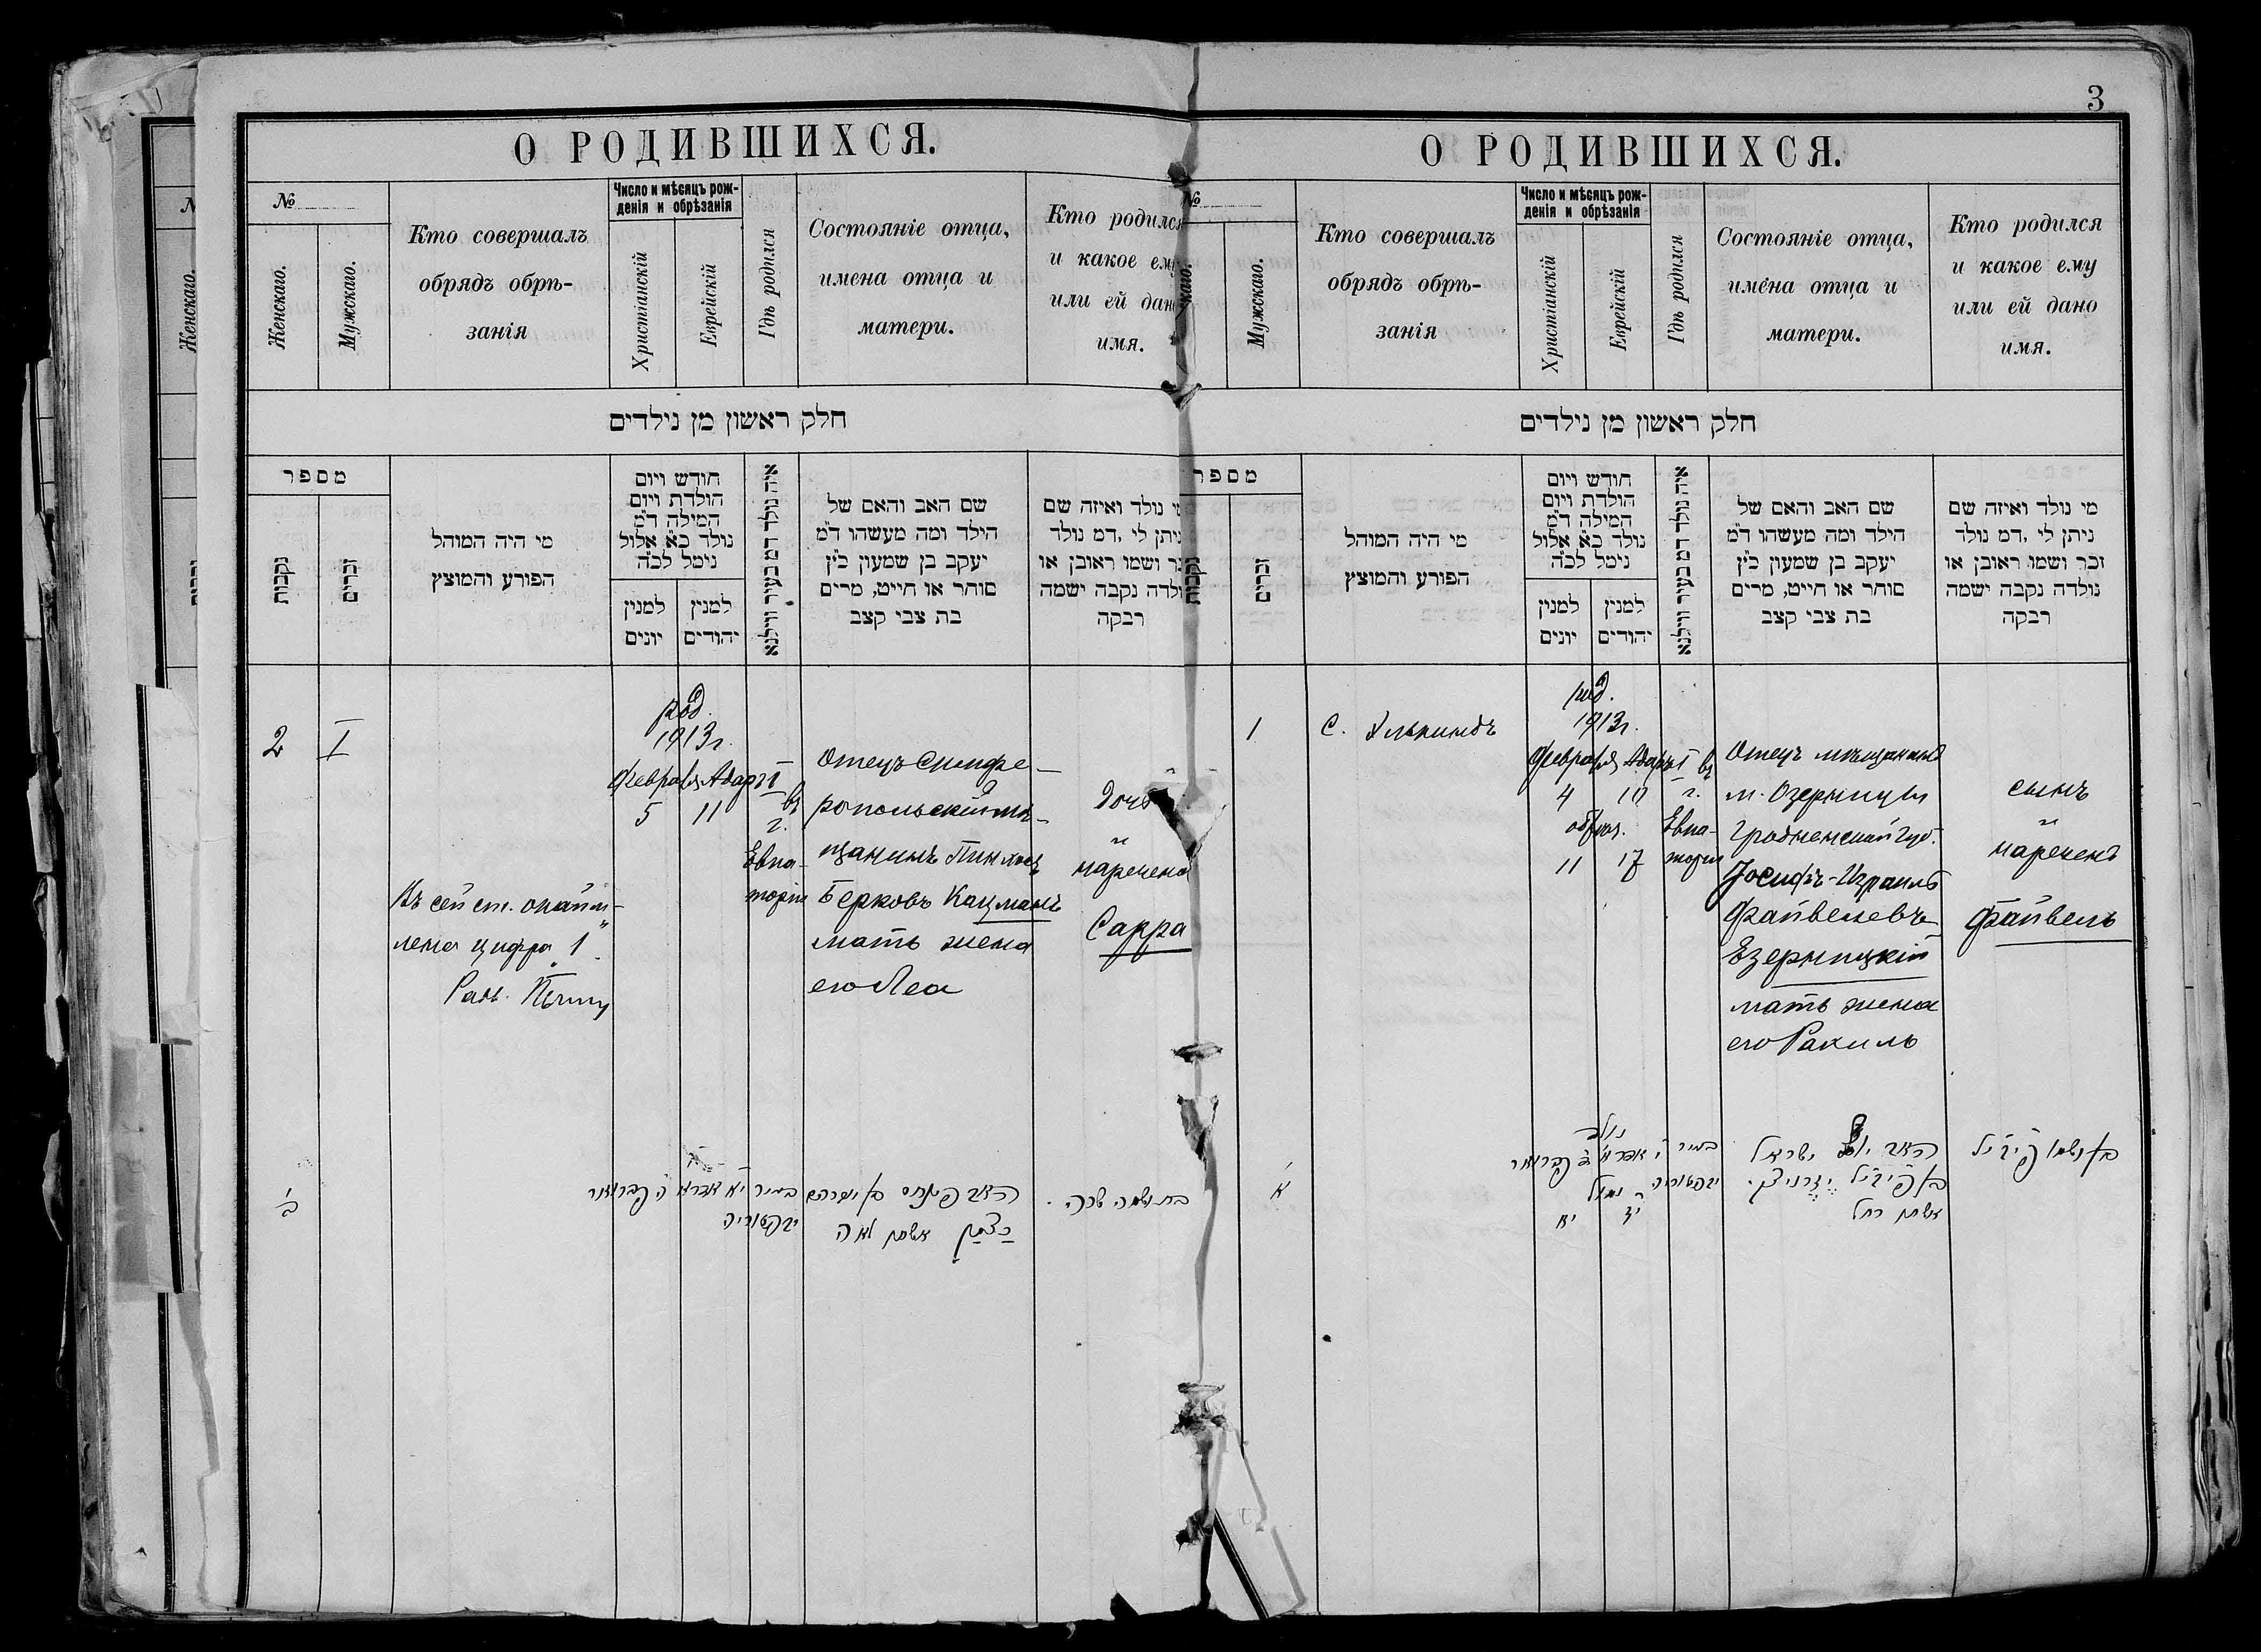 3
О РОДИВШИХСЯ.
№
Женскаго.
Мужскаго.
Кто совершалъ
обрядъ обрѣ-
занія
Число и мѣсяцъ рож-
денія и обрѣзанія
Христіанскій
Еврейскій
Гдѣ родился
Состояніе отца,
имена отца и
матери.
Кто родился
и какое ему
или ей дано
имя.
חלק ראשון מן נילדים
מספר
נקבות
זכרים
מי היה המוהל
הפורע והמוצץ
חודש ויום
הולדת ויום
המילה ד״מ
נולד כ״א אלול
נימל לכ״ה
למנין
יונים
למנין
יהודים
איה נולד דמ בעיר ווילנא
שם האב והאם של
הילד ומה מעשהו ד״מ
יעקב בן שמעון כ״ץ
סוחר או חייט, מרים
בת צבי קצב
מי נולד ואיזה שם
ניתן לי ,דמ נולד
זכר ושמו ראובן או
נולדה נקבה ישמה
רבקה
2
I
Въ сей ст.
лена цифра „1"
Рав.
род.
1913г.
Февраля Адаръ I
5 11
въ
г.
Евпа-
торіи
Отецъ Симфе-
ропольскій мѣ-
щанинъ Пинхосъ
Берковъ Кацманъ
мать жена
его Леа
Дочь
и
наречена
Сарра
ב׳
בעיר י״א אדר א׳ ה׳ פברואר
יבפטוריה
האב פנחס בן
כצמן אשתו לאה
בת ושמה שרה.
О РОДИВШИХСЯ.
№
Мужскаго.
Кто совершалъ
обрядъ обрѣ-
занія
Число и мѣсяцъ рож-
денія и обрѣзанія
Христіанскій
Еврейскій
Гдѣ родился
Состояніе отца,
имена отца и
матери.
Кто родился
и какое ему
или ей дано
имя.
חלק ראשון מן נילדים
מספר
נקבות
זכרים
מי היה המוהל
הפורע והמוצץ
חודש ויום
הולדת ויום
המילה ד״מ
נולד כ״א אלול
נימל לכ״ה
למנין
יונים
למנין
יהודים
איה נולד דמ בעיר ווילנא
שם האב והאם של
הילד ומה מעשהו ד״מ
יעקב בן שמעון כ״ץ
סוחר או חייט, מרים
בת צבי קצב
מי נולד ואיזה שם
ניתן לי ,דמ נולד
זכר ושמו ראובן או
נולדה נקבה ישמה
רבקה
1
С.
род.
1913г.
Февраля Адаръ I
4 10
обрѣз.
11 17
въ
г.
Евпа-
торіи
Отецъ мѣщанинъ
м. Озерницы
Гродненской губ.
Іосифъ-Израиль
Файвелевъ
Езерницкій
мать жена
его Рахиль
сынъ
и
нареченъ
Файвель
א׳
נולד
בעיר י׳ אדר א׳ ד׳ פברואר
יבפטוריה
נמול
י״ז י״א
האב יוסף ישראל
בן פייוויל יזרניצקי
אשתו רחל
בן ושמו פייוויל